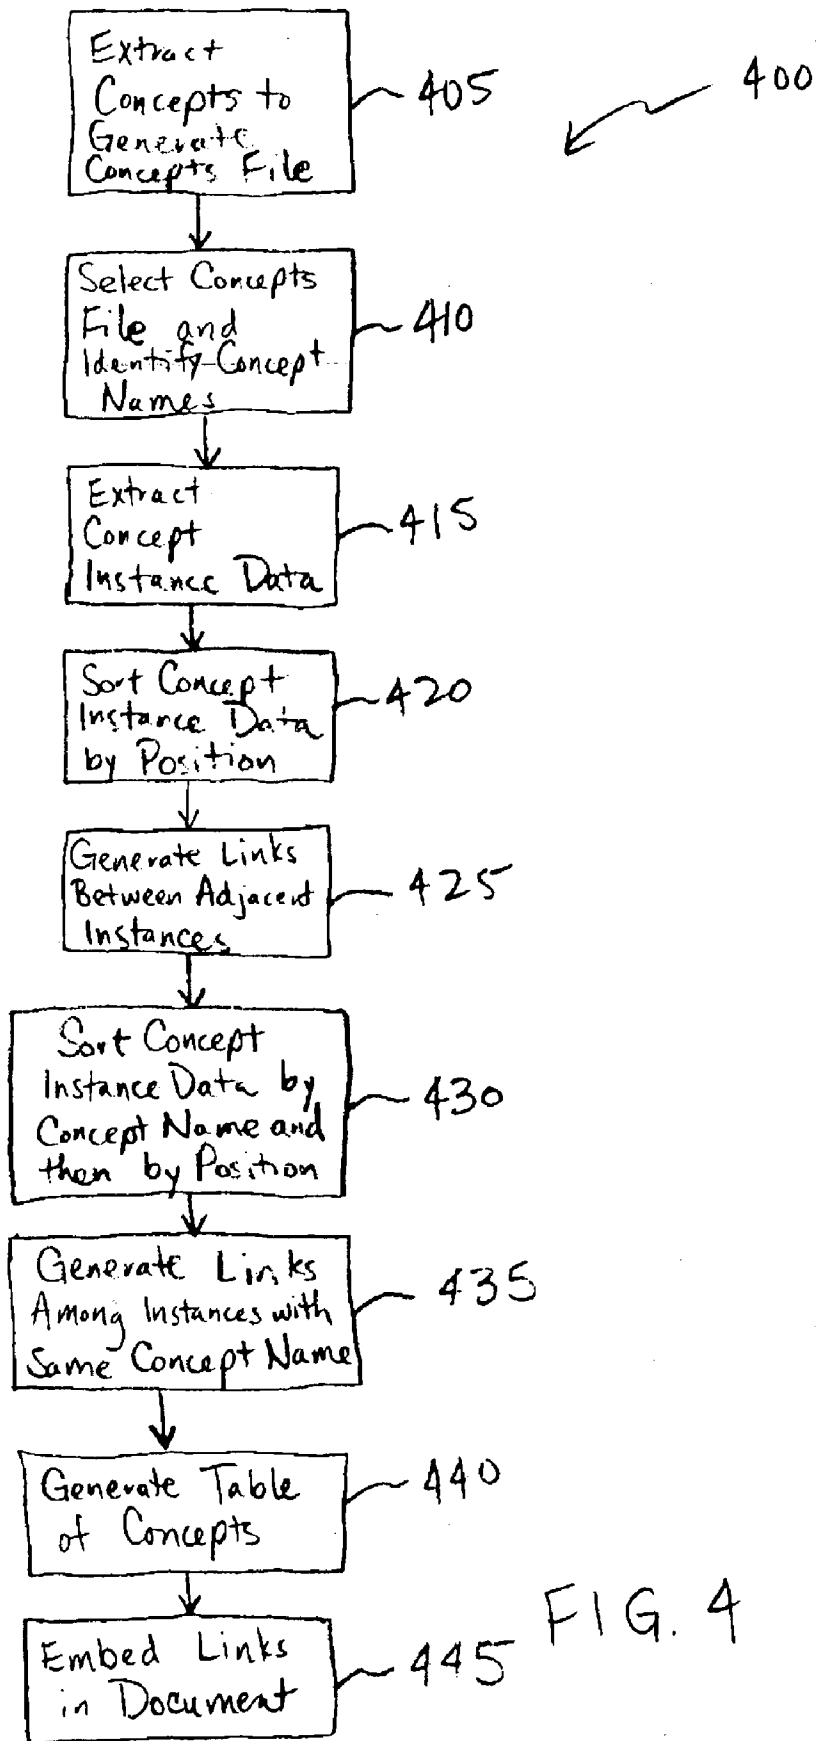 Extract
Concepts to
Generate
Concepts File
405
400
Select Concepts
File and
Identify Concept
Names
410
Extract
Concept
Instance Data
415
Sort Concept
Instance Data
by Position
420
Generate Links
Between Adjacent
Instances
425
Sort Concept
Instance Data by
Concept Name and
then by Position
430
Generate Links
Among Instances with
Same Concept Name
435
Generate Table
of Concepts
440
Embed Links
in Document
445
FIG. 4